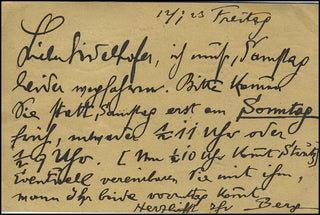 12/I 23 Freitag
Lieber Seidelhofer, ich muß Samstag
leider wegfahren. Bitte kommen
Sie statt Samstag erst am Sonntag
früh, entweder ½ 11 Uhr oder
½ 9 Uhr. [Um ½ 10 Uhr kommt
Eventuell vereinbaren Sie mit ihm,
wann Ihr beide vormittag kommt
Herzlichst Ihr Berg